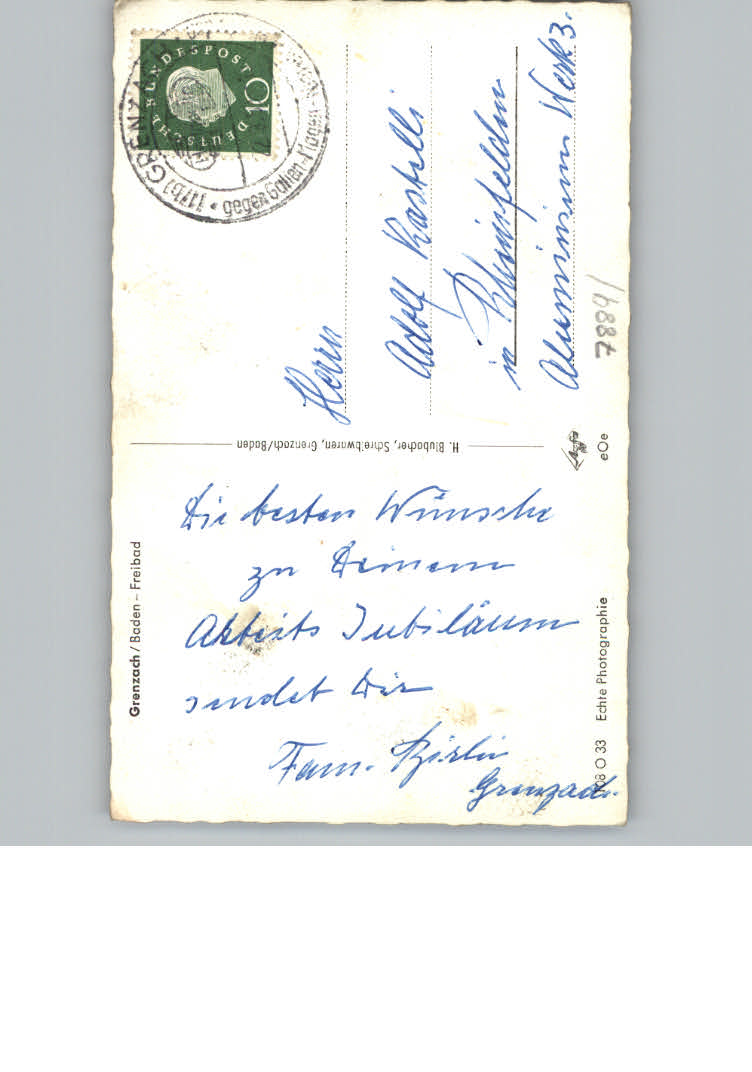 Die besten Wünsche
zu Deinem
Arbeits Jubiläum
sendet Dir
Fam.
Grenzach.
Herrn
Adolf Kastelli
in Rheinfelden
Aluminium Werk 3.
Grenzach / Baden – Freibad
H. Blubacher, Schreibwaren, Grenzach/Baden
108 O 33 Echte Photographie
Agfa
eOe
78894/
DEUTSCHE BUNDESPOST
10
(17b) GRENZACH
gegen Gallen-Magen-